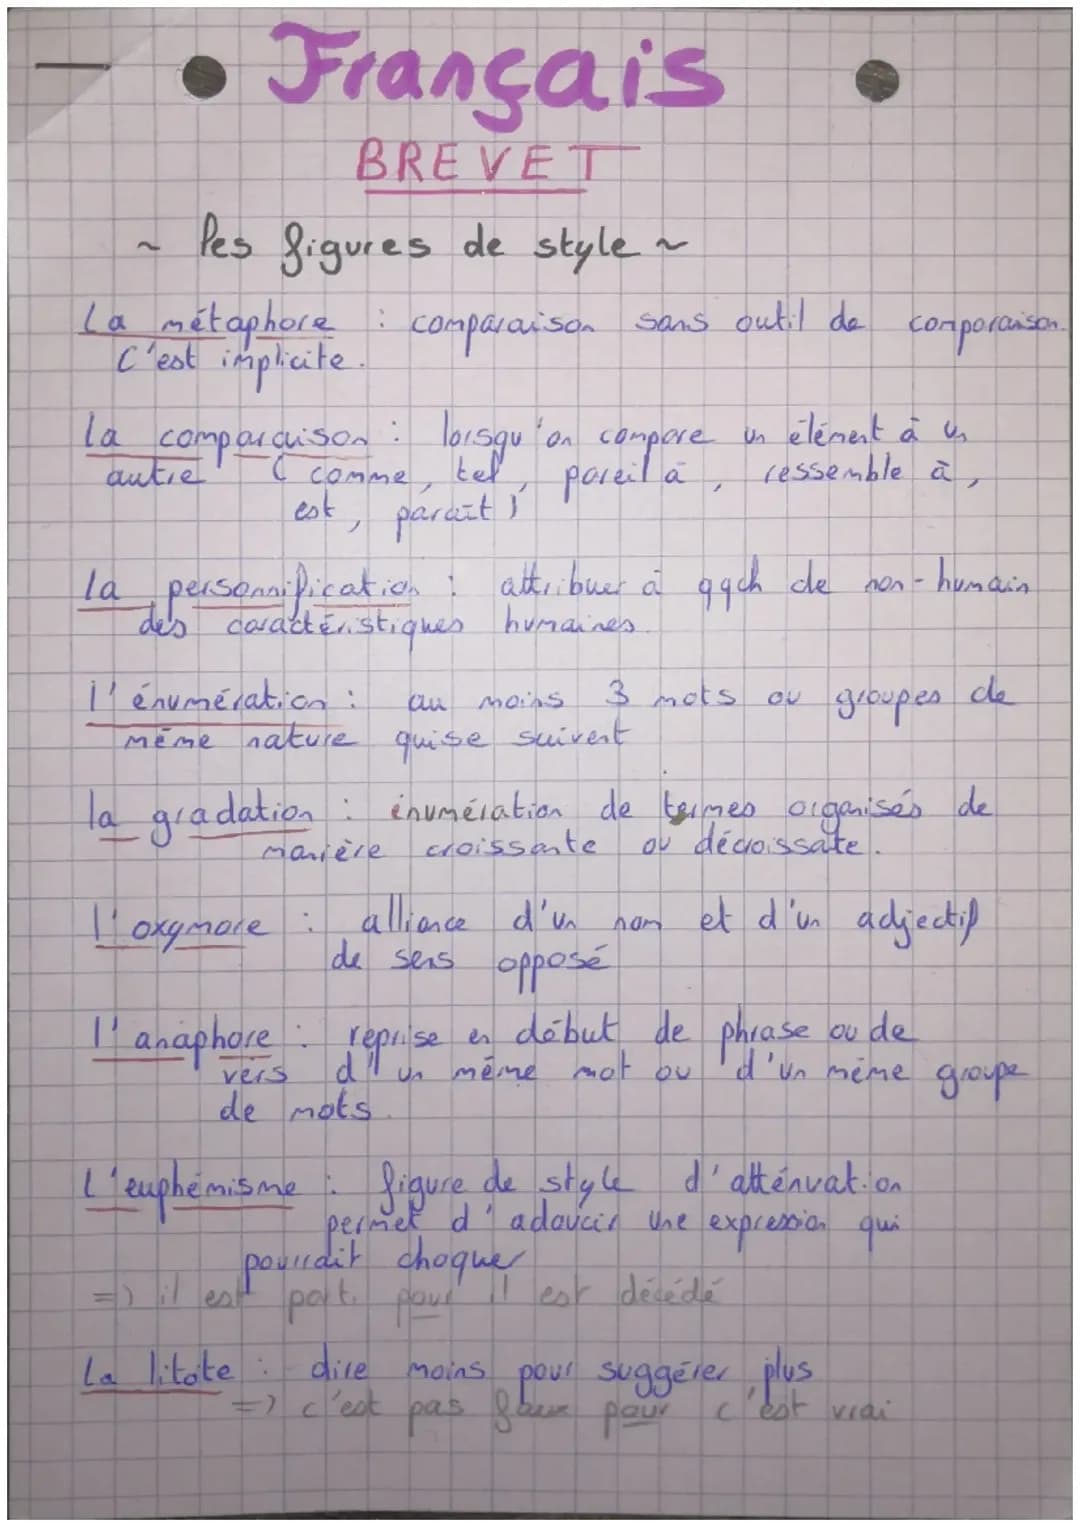 Français
BREVET
~ les figures de style ~
La métaphore : comparaison sans outil de comparaison.
C'est implicite.
la comparaison : lorsqu'on compare un élément à un
autre ( comme, tel, pareil à, ressemble à,
est, paraît )
la personnification : attribuer à qqch de non-humain
des caractéristiques humaines.
l'énumération : au moins 3 mots ou groupes de
même nature qui se suivent
la gradation : énumération de termes organisés de
manière croissante ou décroissate.
l'oxymore : alliance d'un nom et d'un adjectif
de sens opposé
l'anaphore : reprise en début de phrase ou de
vers d'un même mot ou d'un même groupe
de mots.
L'euphémisme : figure de style d'atténuation
permet d'adoucir une expression qui
pourrait choquer
=> il est parti pour il est décédé
La litote : dire moins pour suggérer plus
=> c'est pas faux pour c'est vrai